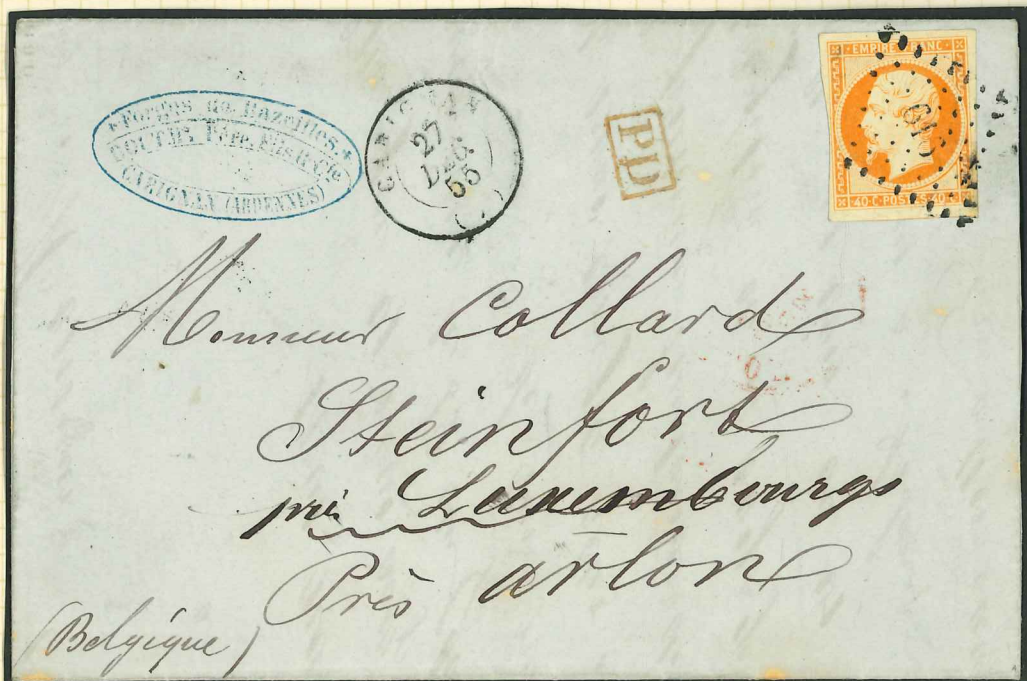 Forges de Bazeilles
BOUTMY Père, Fils & Cie
CARIGNAN (ARDENNES)
CARIGNAN
27
DEC.
55
(7)
PD
EMPIRE FRANC
40 C POSTES 40 C
Monsieur Collard
Steinfort
près Luxembourg
Près arlon
(Belgique)